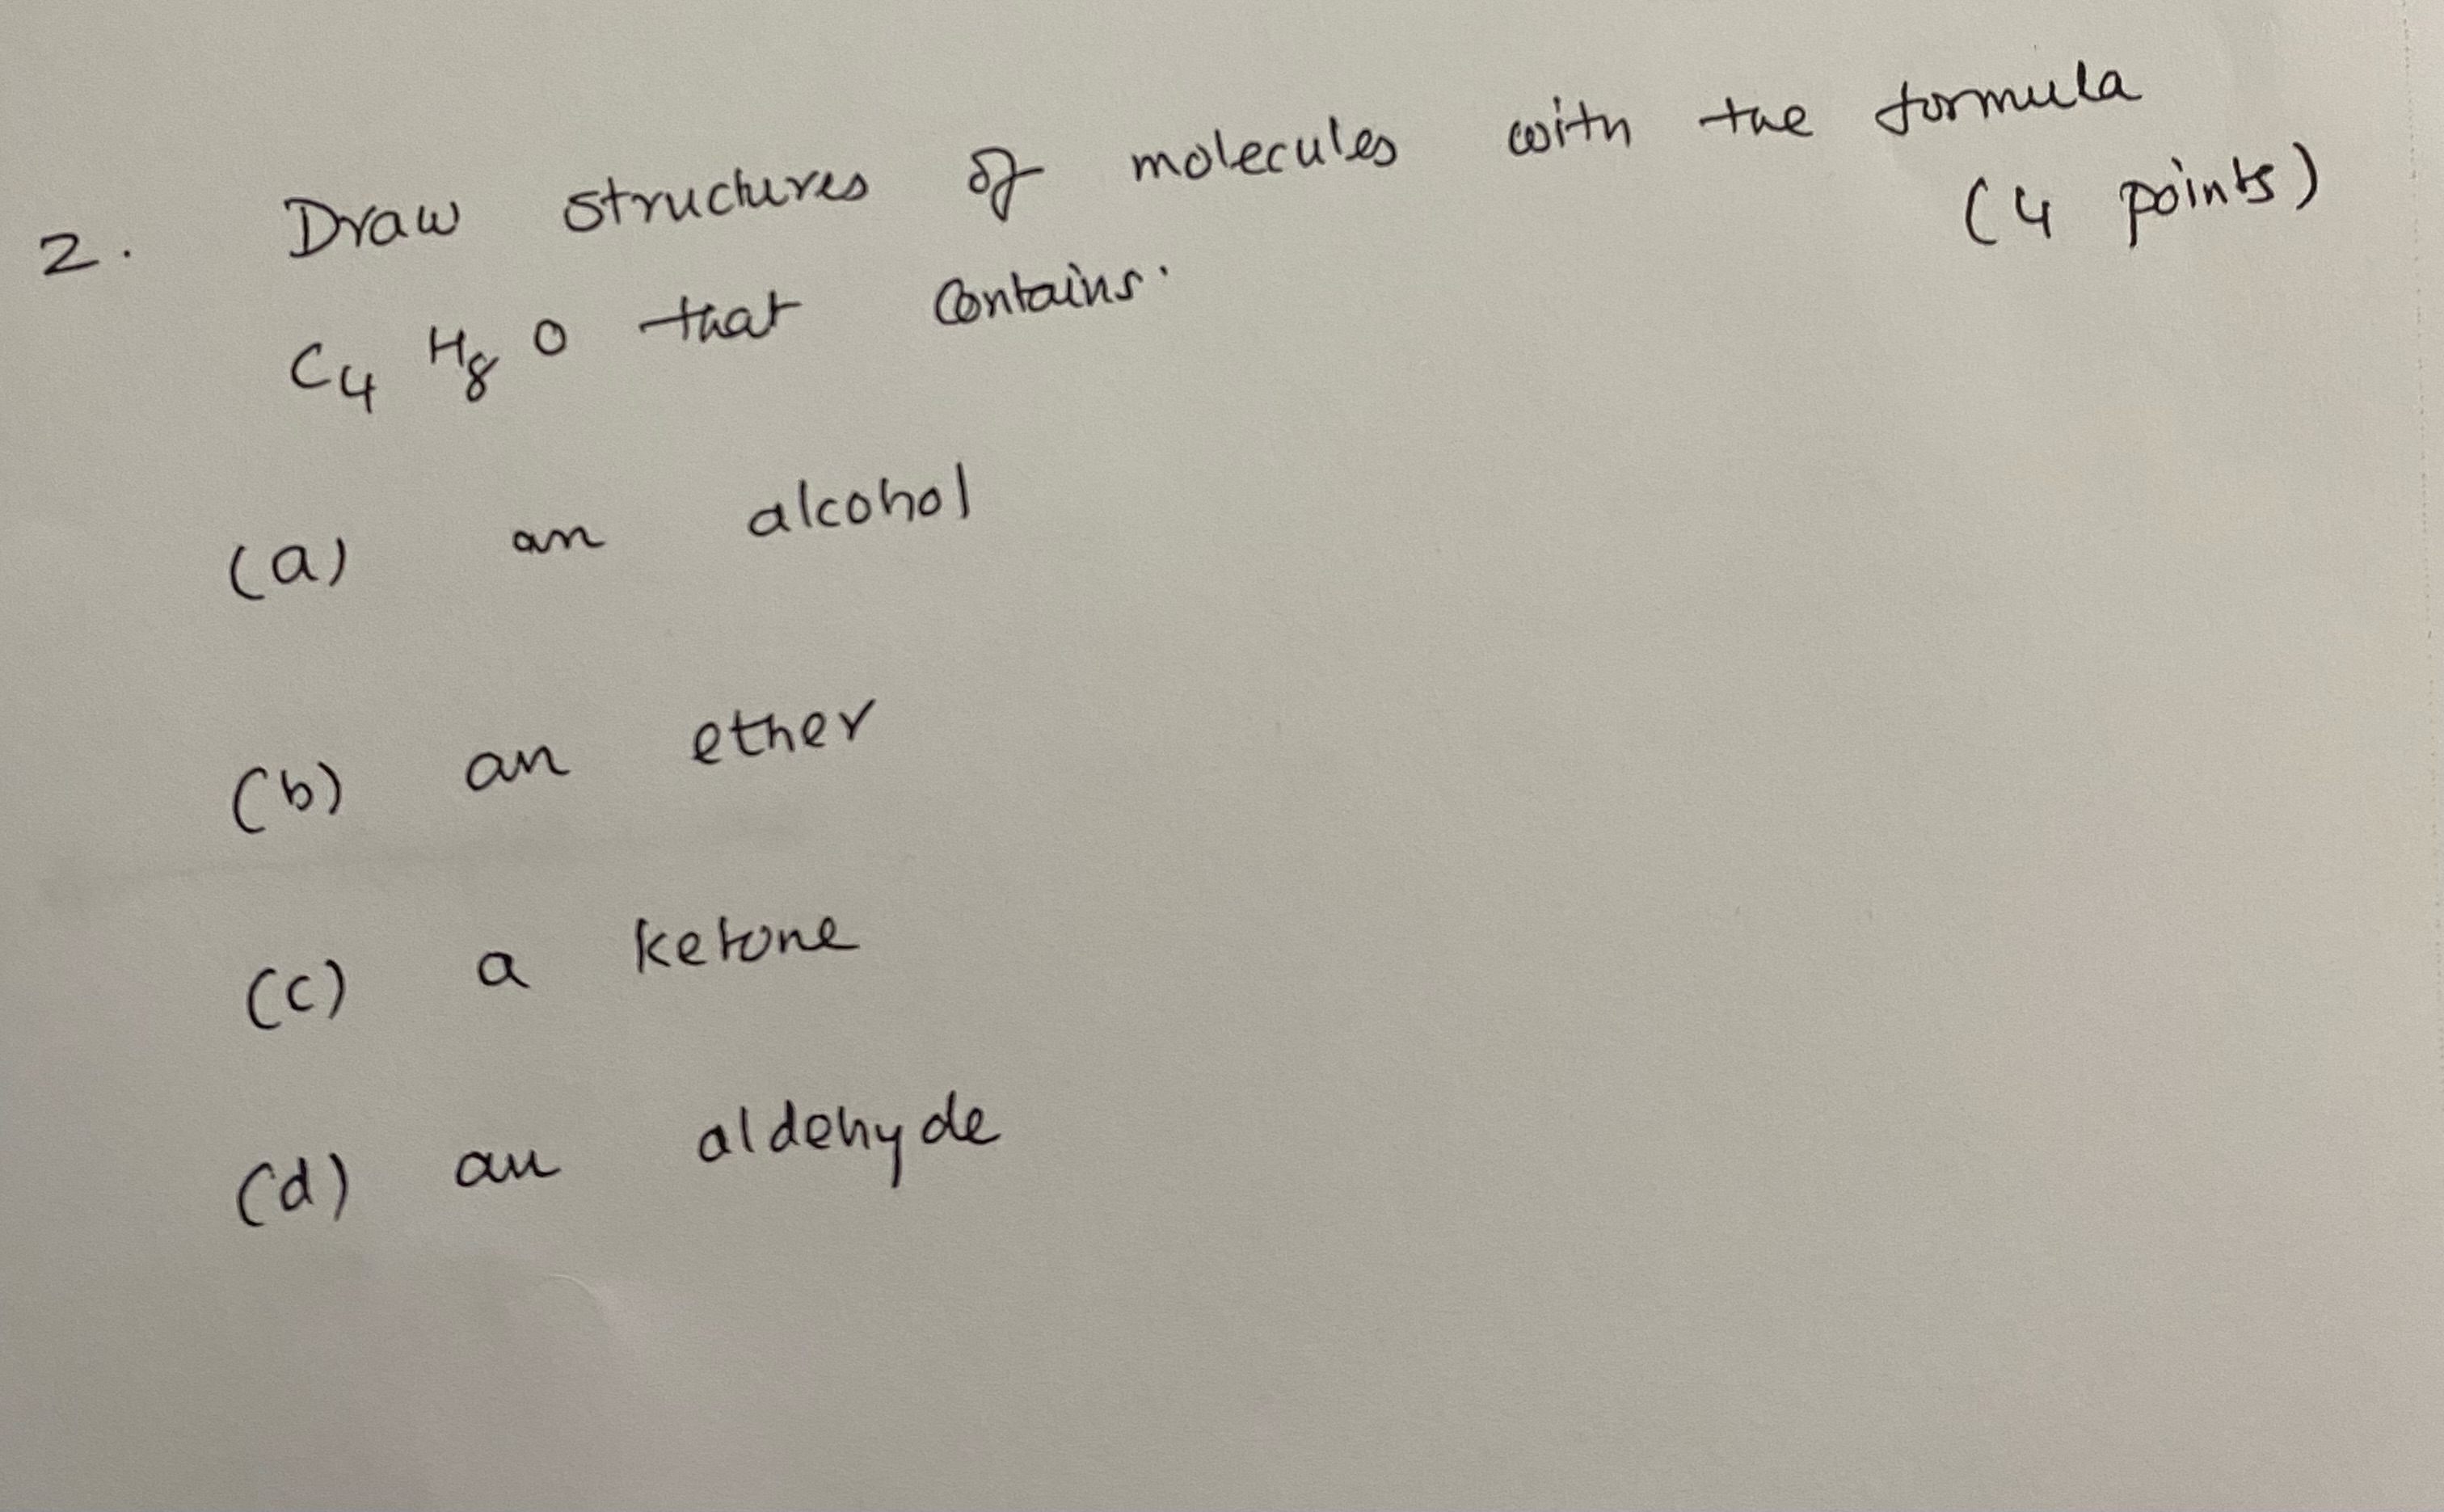 2. Draw structures of molecules with the formula
C4 H8 O that contains. (4 points)
(a) an alcohol
(b) an ether
(c) a ketone
(d) an aldehyde